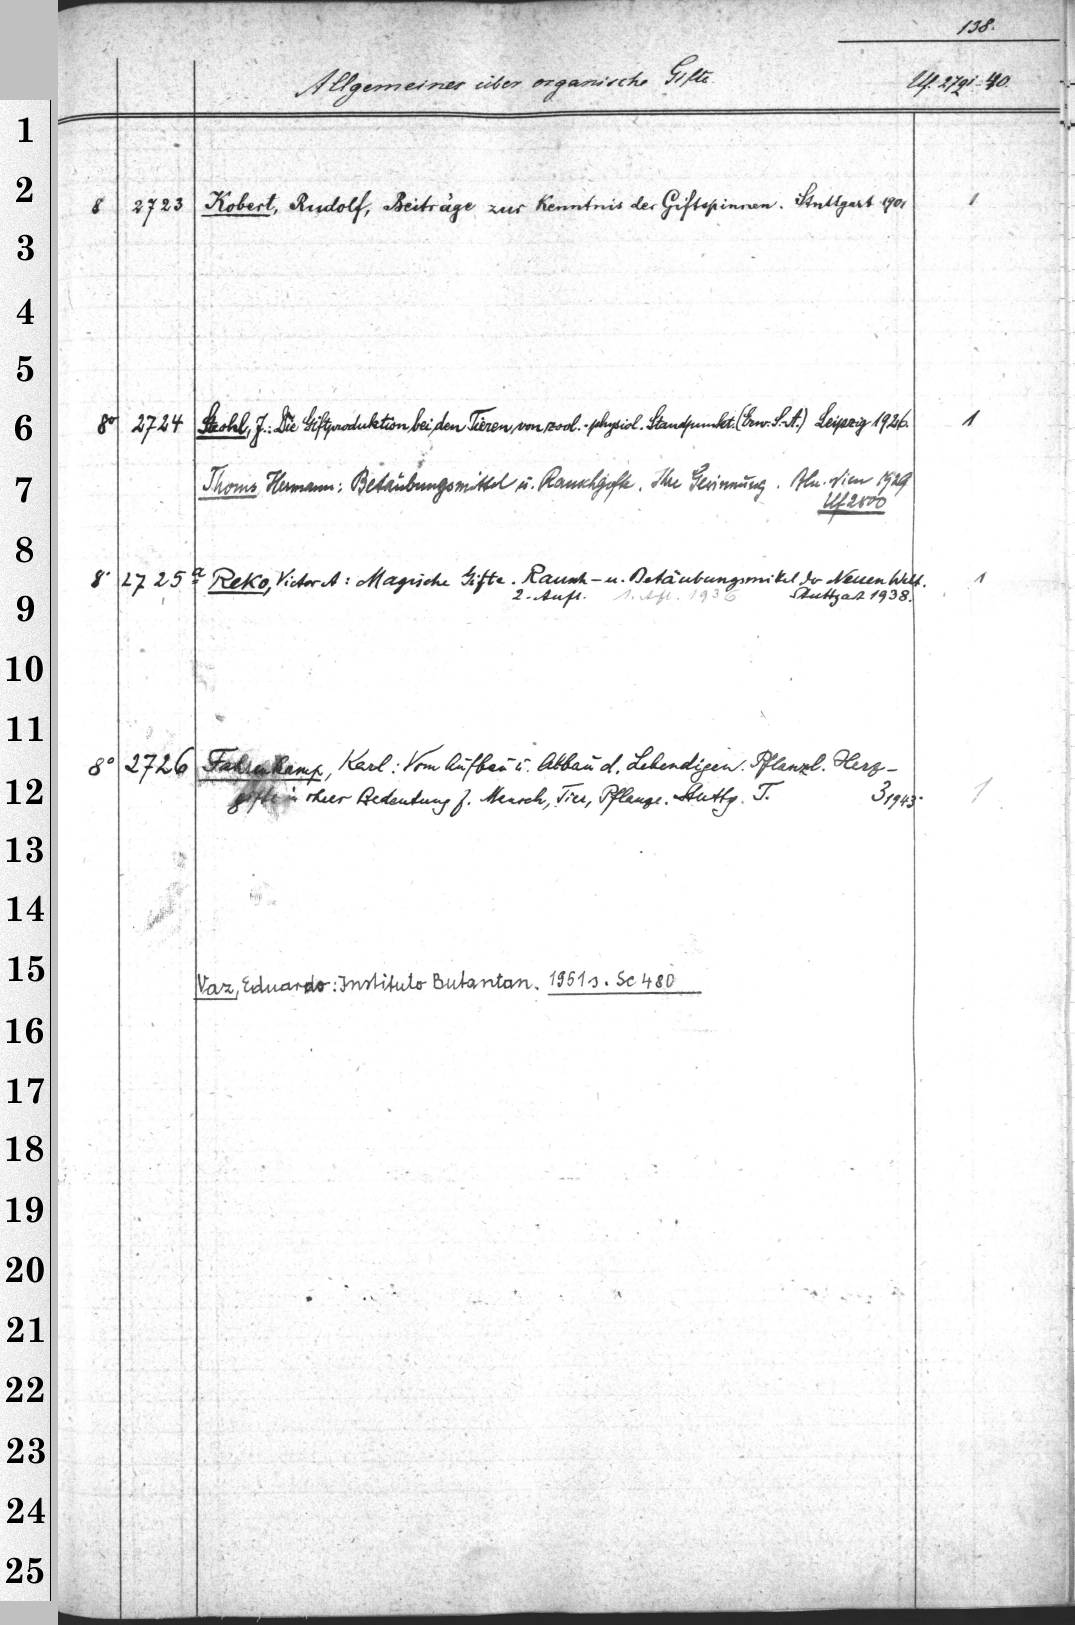 138.
Allgemeines über organische Gifte. Uf. 2721-40.
1
2
8 2723 Kobert, Rudolf, Beiträge zur Kenntnis der Giftspinnen. Stuttgart 1901 1
3
4
5
6
8° 2724 Strohl, J.: Die Giftproduktion bei den Tieren von zool.-physiol. Standpunkt. (Erw. S.-A.) Leipzig 1926. 1
7
Thoms, Hermann: Betäubungsmittel u. Rauschgifte. Ihre Gewinnung. Bln. Wien 1929
Uf 2800
8
8° 2725 a Reko, Victor A: Magische Gifte. Rausch- u. Betäubungsmittel der Neuen Welt. 1
9
2. Aufl. 1. Aufl. 1936 Stuttgart 1938.
10
11
8° 2726 Fahrenkamp, Karl: Vom Aufbau u. Abbau d. Lebendigen. Pflanzl. Herz-
12
gifte in ihrer Bedeutung f. Mensch, Tier, Pflanze. Stuttg. T. 3 1943. 1
13
14
15
Vaz, Eduardo: Instituto Butantan. 1951 s. Sc 480
16
17
18
19
20
21
22
23
24
25